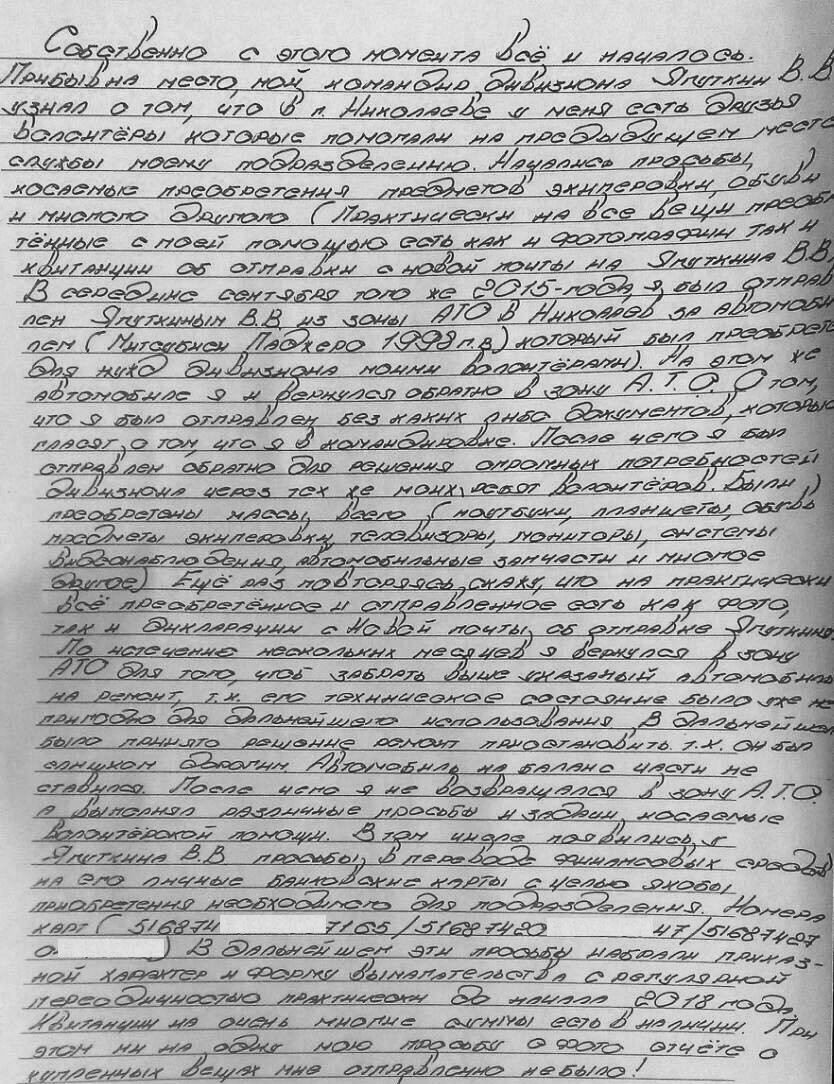 Собственно с этого момента всё и началось.
Прибыв на место, мой командир дивизиона Япуткин В.В.
узнал о том, что в г. Николаеве у меня есть друзья
волонтёры которые помогали на предыдущем месте
службы моему подразделению. Начались просьбы,
косаемые преобретения предметов экиперовки, обуви
и многого другого (Практически на все вещи преобре
тённые с моей помощью есть как и фотографии так и
квитанции об отправки с новой почты на Япуткина В.В.)
В середине сентября того же 2015-года, я был отправ
лен Япуткиным В.В. из зоны АТО в Николаев за автомоби
лем (Митсубиси Паджеро 1998 г.в.) который был преобретён
для нужд дивизиона моими волонтёрами). На этом же
автомобиле я и вернулся обратно в зону А.Т.О. О том,
что я был отправлен без каких либо документов, которые
гласят о том, что я в командировке. После чего я был
отправлен обратно для решения огромных потребностей
дивизиона через тех же моих ребят волонтёров. Были
преобретены массы всего (ноутбуки, планшеты, обувь
предметы экиперовки, телевизоры, мониторы, системы
видеонаблюдения, автомобильные запчасти и многое
другое) Ещё раз повторяясь скажу, что на практически
всё преобретённое и отправленное есть как фото,
так и дикларации с Новой почты, об отправке Япуткину
По истечению нескольких месяцев я вернулся в зону
АТО для того, чтоб забрать выше указаный автомобиль
на ремонт, т.к. его техническое состояние было уже не
пригодно для дальнейшего использования. В дальнейшем
было принято решение ремонт приостановить. т.к. он был
слишком дорогим. Автомобиль на баланс части не
ставился. После чего я не возвращался в зону А.Т.О.
а выполнял различные просьбы и задачи, косаемые
волонтёрской помощи. В том числе появились у
Япуткина В.В. просьбы, в переводе финансовых средств
на его личные банковские карты с целью якобы,
приобретения необходимого для подразделения. Номера
карт ( 516874 7165/51687420 47/51687427
0 ) В дальнейшем эти просьбы набрали приказ-
ной характер и форму вымагательства с регулярной
переодичностью практически до начала 2018 года.
Квитанции на очень многие суммы есть в наличии. При
этом ни на одну мою просьбу о фото отчёте о
купленных вещах мне отправленно не было!